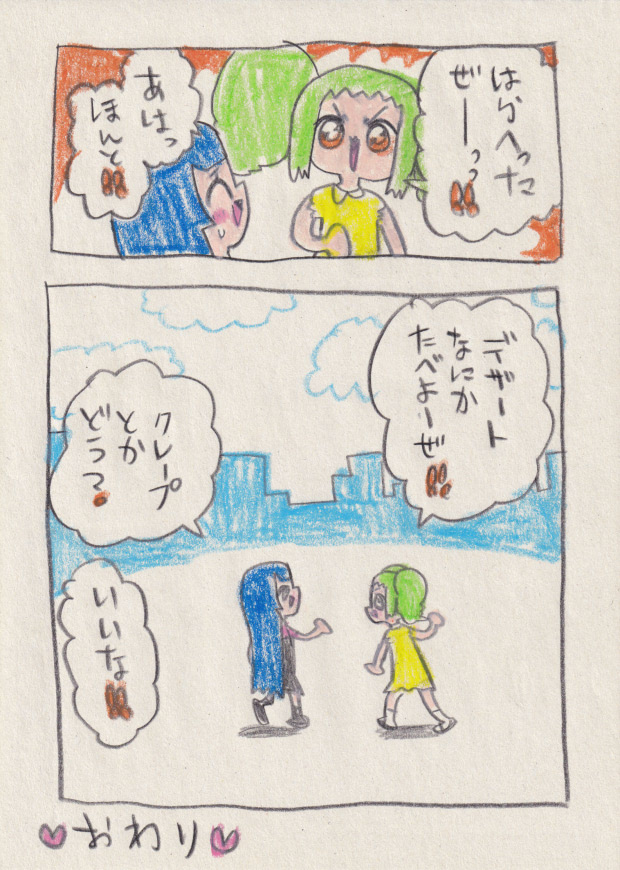 はらへった
ぜーっっ!!
あはっ
ほんと!!
デザート
なにか
たべよーぜ!!
クレープ
とか
どう?
いいな!!
おわり